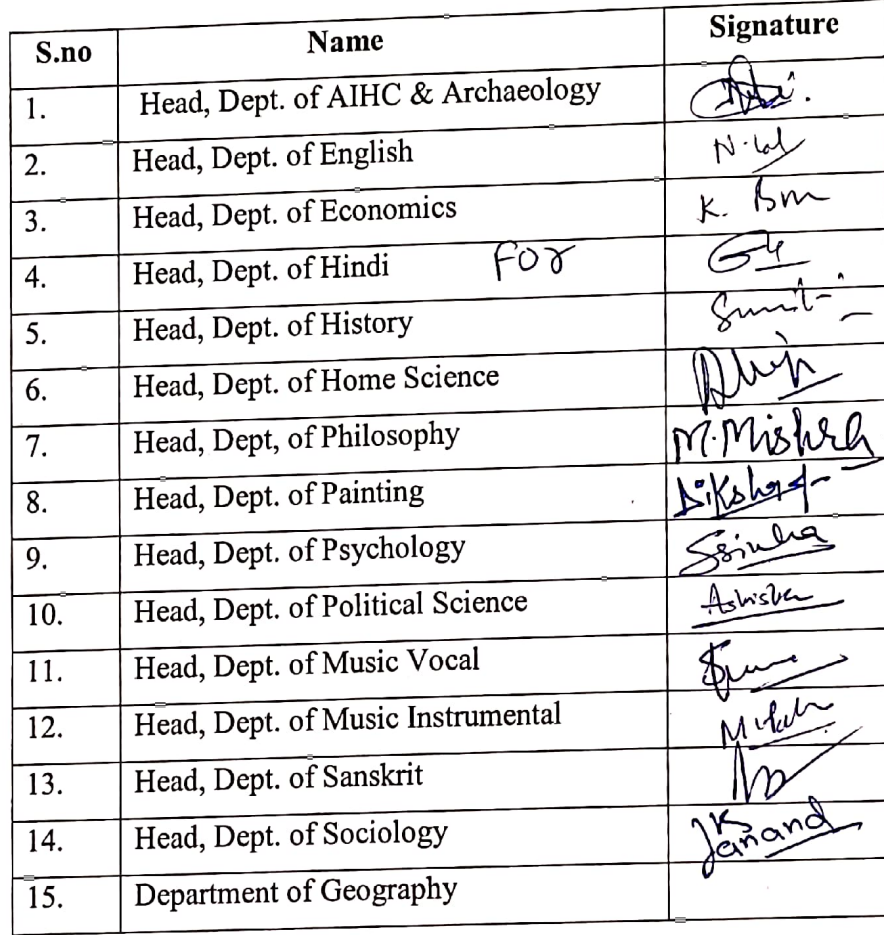 S.no Name Signature
1. Head, Dept. of AIHC & Archaeology
2. Head, Dept. of English N. Lal
3. Head, Dept. of Economics K.
4. Head, Dept. of Hindi For
5. Head, Dept. of History
6. Head, Dept. of Home Science
7. Head, Dept, of Philosophy M. Mishra
8. Head, Dept. of Painting
9. Head, Dept. of Psychology Ssinha
10. Head, Dept. of Political Science
11. Head, Dept. of Music Vocal
12. Head, Dept. of Music Instrumental
13. Head, Dept. of Sanskrit
14. Head, Dept. of Sociology
15. Department of Geography